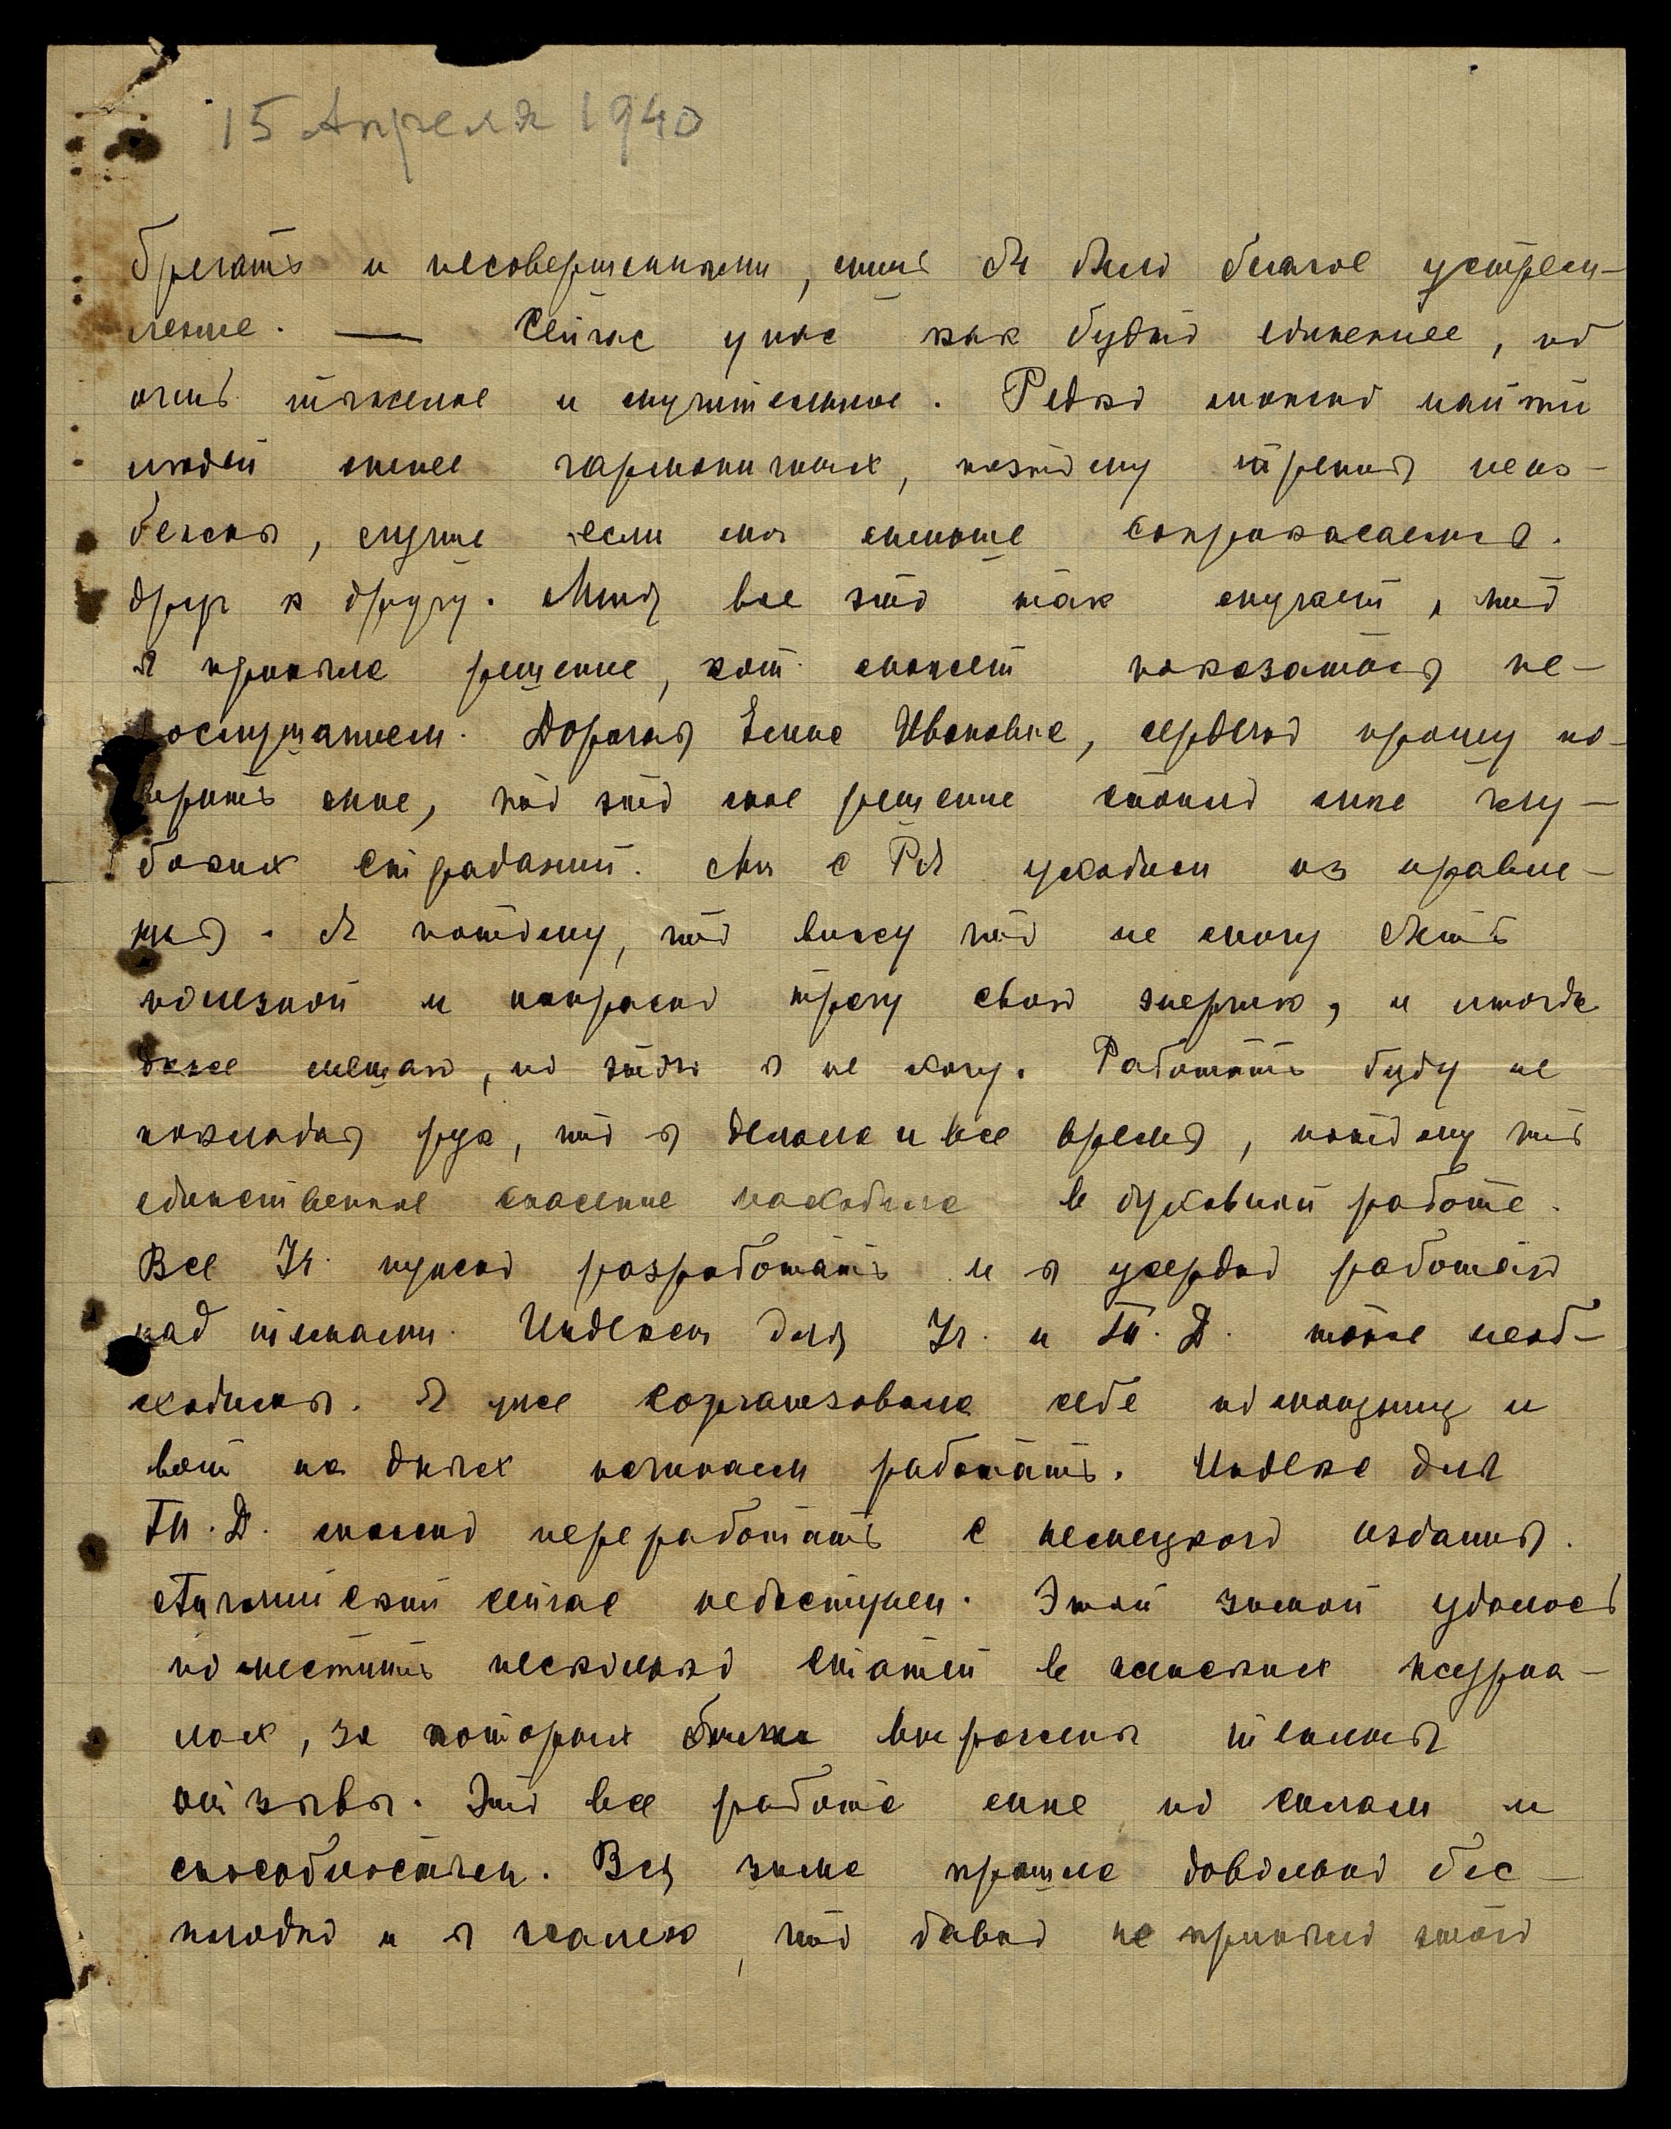 15 Апреля 1940
брегать и несовершенными, лишь бы было благое устрем-
ление. — Сейчас у нас как будто единение, но
очень тяжелое и мучительное. Редко можно найти
людей менее гармоничных, поэтому трения неиз-
бежны, лучше если мы меньше соприкасаемся
друг к другу. Меня все это так мучает, что
я приняла решение, кот. может показаться не-
послушанием. Дорогая Елена Ивановна, сердечно прошу по-
верить мне, что это мое решение стоило мне глу-
боких страданий. Мы с уходим из правле-
ния. Я потому, что вижу что не могу быть
полезной и напрасно трачу свою энергию, и иногда
даже мешаю, но этого я не хочу. Работать буду не
покладая рук, что я делала и все время, потому что
единственное спасение находила в духовной работе.
Все Уч. нужно разработать и я усердно работаю
над темами. Индексы для Уч. и Т. Д. тоже необ-
ходимы. Я уже сорганизовала себе помощниц и
вот на днях начинаем работать. Индекс для
Т. Д. можно переработать с немецкого издания.
Английский сейчас недоступен. Этой зимой удалось
поместить несколько статей в женских журна-
лах, за которых были выражены теплые
отзывы. Это все работа мне по силам и
способностям. Вся зима прошла довольно бес-
плодно и я жалею, что давно не приняла этого